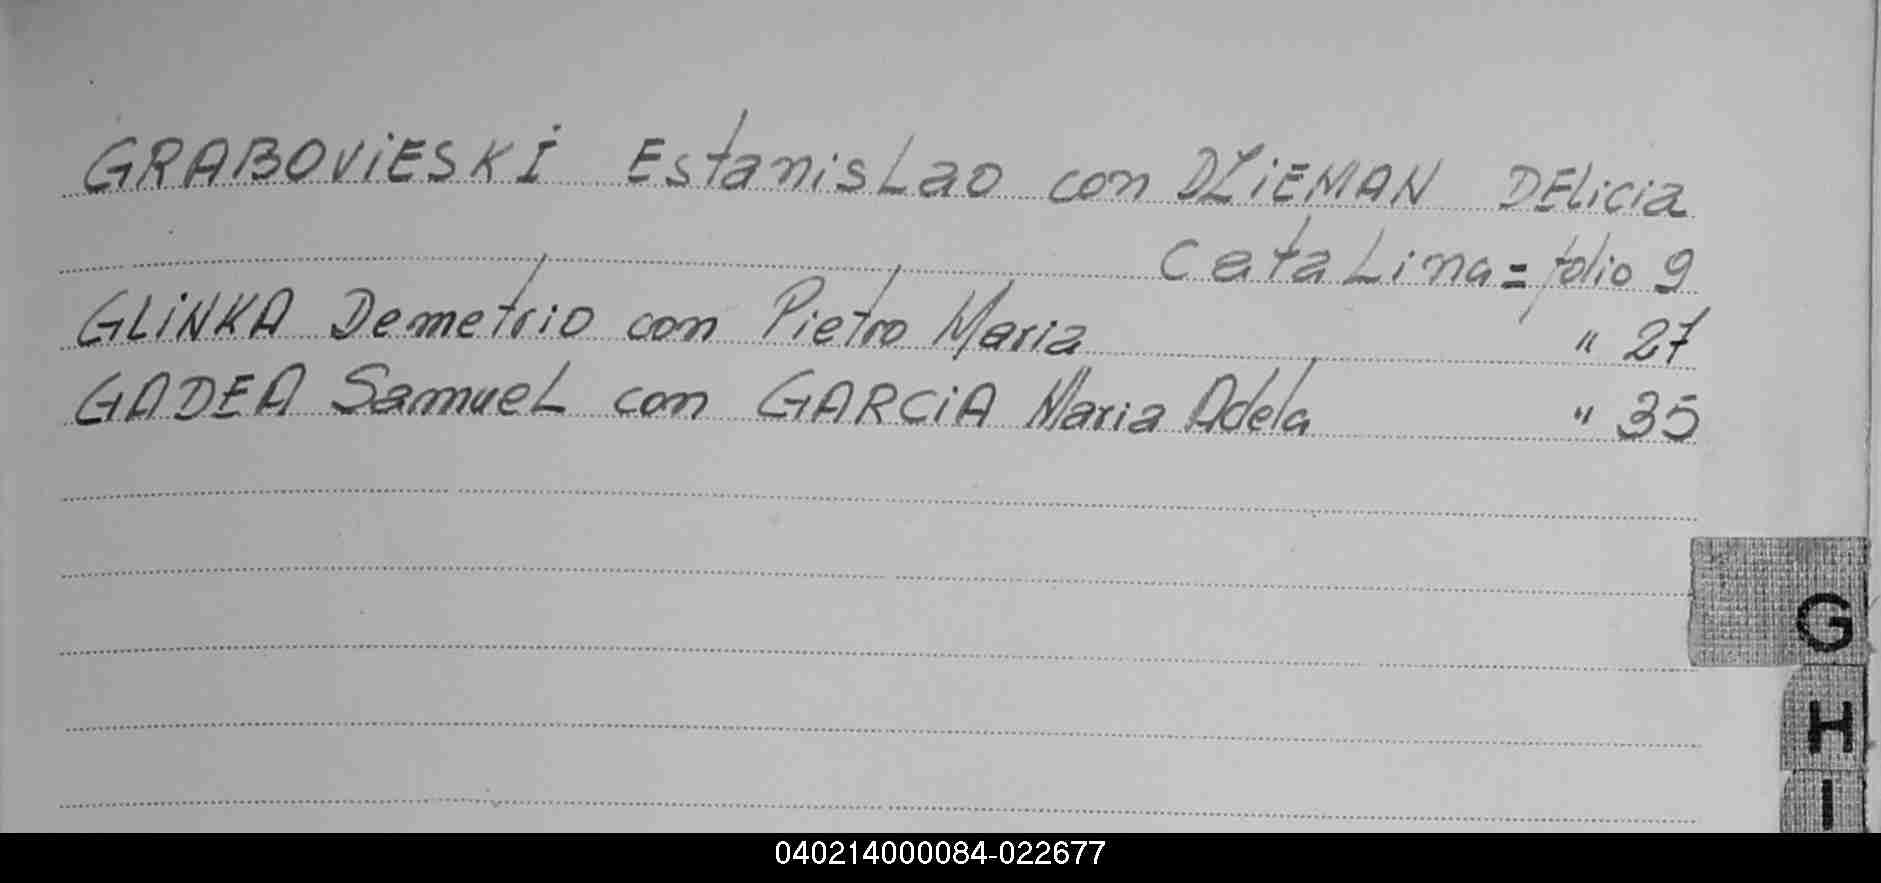 GRABOViESKi EstanisLao con DZiEMAN DELicia
CataLina = folio 9
GLiNKA Demetrio con Pietro Maria " 27
GADEA SamueL con GARCiA Maria Adela " 35
G
H
I
040214000084-022677